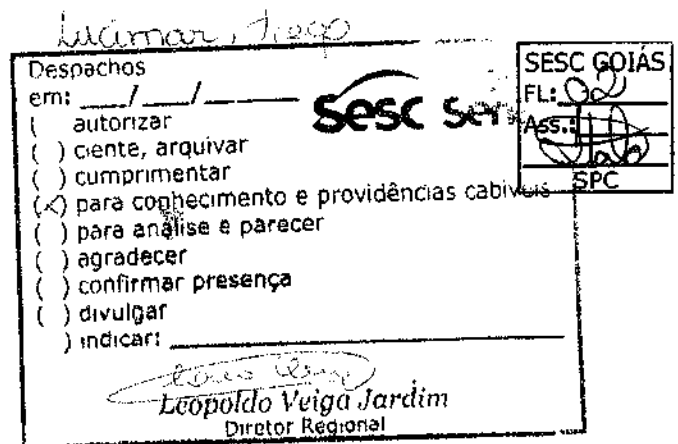 Lucimar, Tiego
Despachos
em: ___/___/______
( autorizar
( ) ciente, arquivar
( ) cumprimentar
(X) para conhecimento e providências cabíveis
( ) para análise e parecer
( ) agradecer
( ) confirmar presença
( ) divulgar
) indicar: ______________________
Leopoldo Veiga Jardim
Diretor Regional
Sesc Sen
SESC GOIÁS
FL: 02
Ass.:
SPC